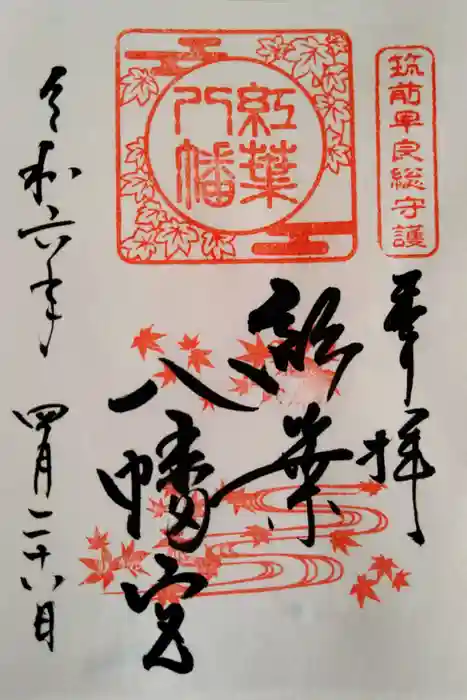 筑前早良総守護
奉拝
紅葉
八幡
紅葉
八幡宮
令和六年
四月二十八日